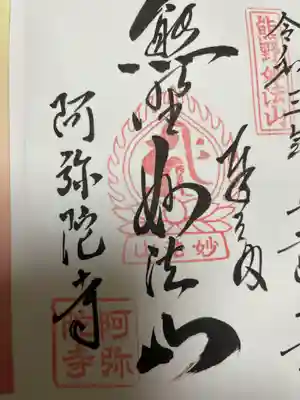 令和二年
奉拝
熊野妙法山
熊野妙法山
妙法山
阿弥陀寺
阿弥陀寺